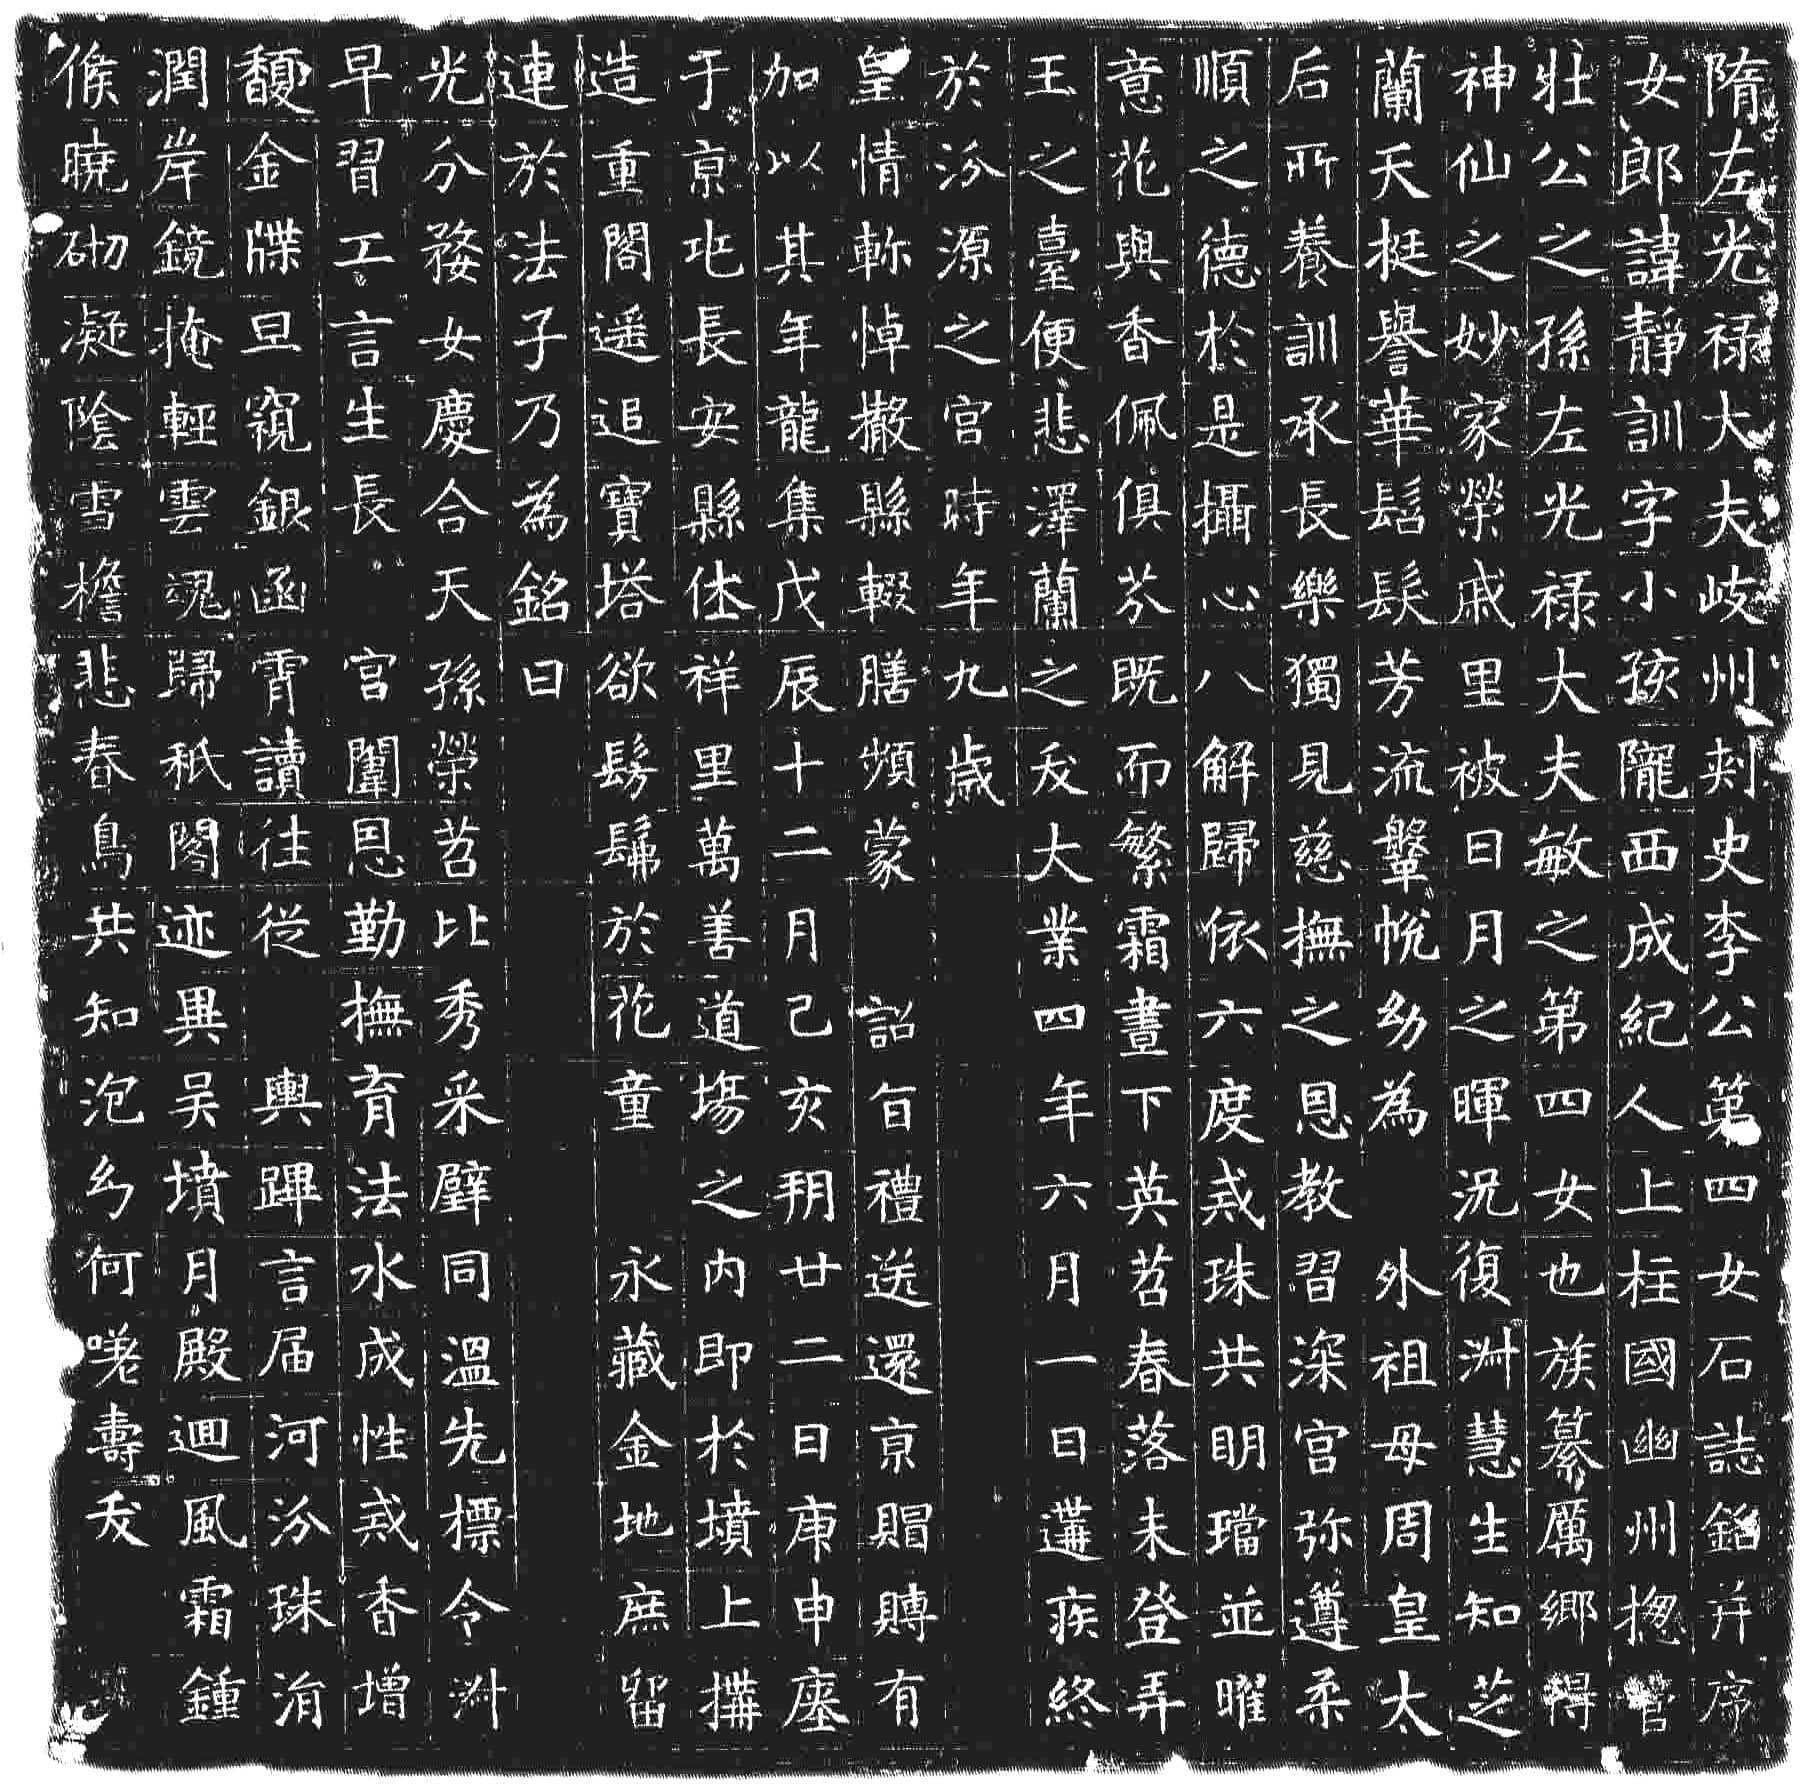 隋左光禄大夫岐州刾史李公第四女石誌銘并序
女郎諱靜訓字小孩隴西成紀人上柱國幽州揔管
壯公之孫左光禄大夫敏之第四女也族纂厲鄉得
神仙之妙家榮戚里被日月之暉況復淋慧生知芝
蘭天挺譽華髫髮芳流鞶帨幼為 外祖母周皇太
后所養訓承長樂獨見慈撫之恩教習深宮弥遵柔
順之德於是攝心八解歸依六度戒珠共明璫並曜
意花與香佩俱芬既而繁霜晝下英苕春落未登弄
玉之臺便悲澤蘭之夭大業四年六月一日遘疾終
於汾源之宮時年九歲
皇情軫悼撤縣輟膳頻蒙 詔旨禮送還京賵賻有
加以其年龍集戊辰十二月己亥朔廿二日庚申瘞
于京兆長安縣休祥里萬善道場之內即於墳上搆
造重閣遥追寶塔欲髣髴於花童 永藏金地庶留
連於法子乃為銘曰
光分婺女慶合天孫榮苕比秀采璧同溫先標令淋
早習工言生長 宮闈恩勤撫育法水成性戒香增
馥金牒旦窺銀函霄讀往從 輿蹕言届河汾珠涓
潤岸鏡掩輕雲魂歸秖閣迹異吴墳月殿迴風霜鍾
候曉砌凝陰雪檐悲春鳥共知泡幻何嗟壽夭